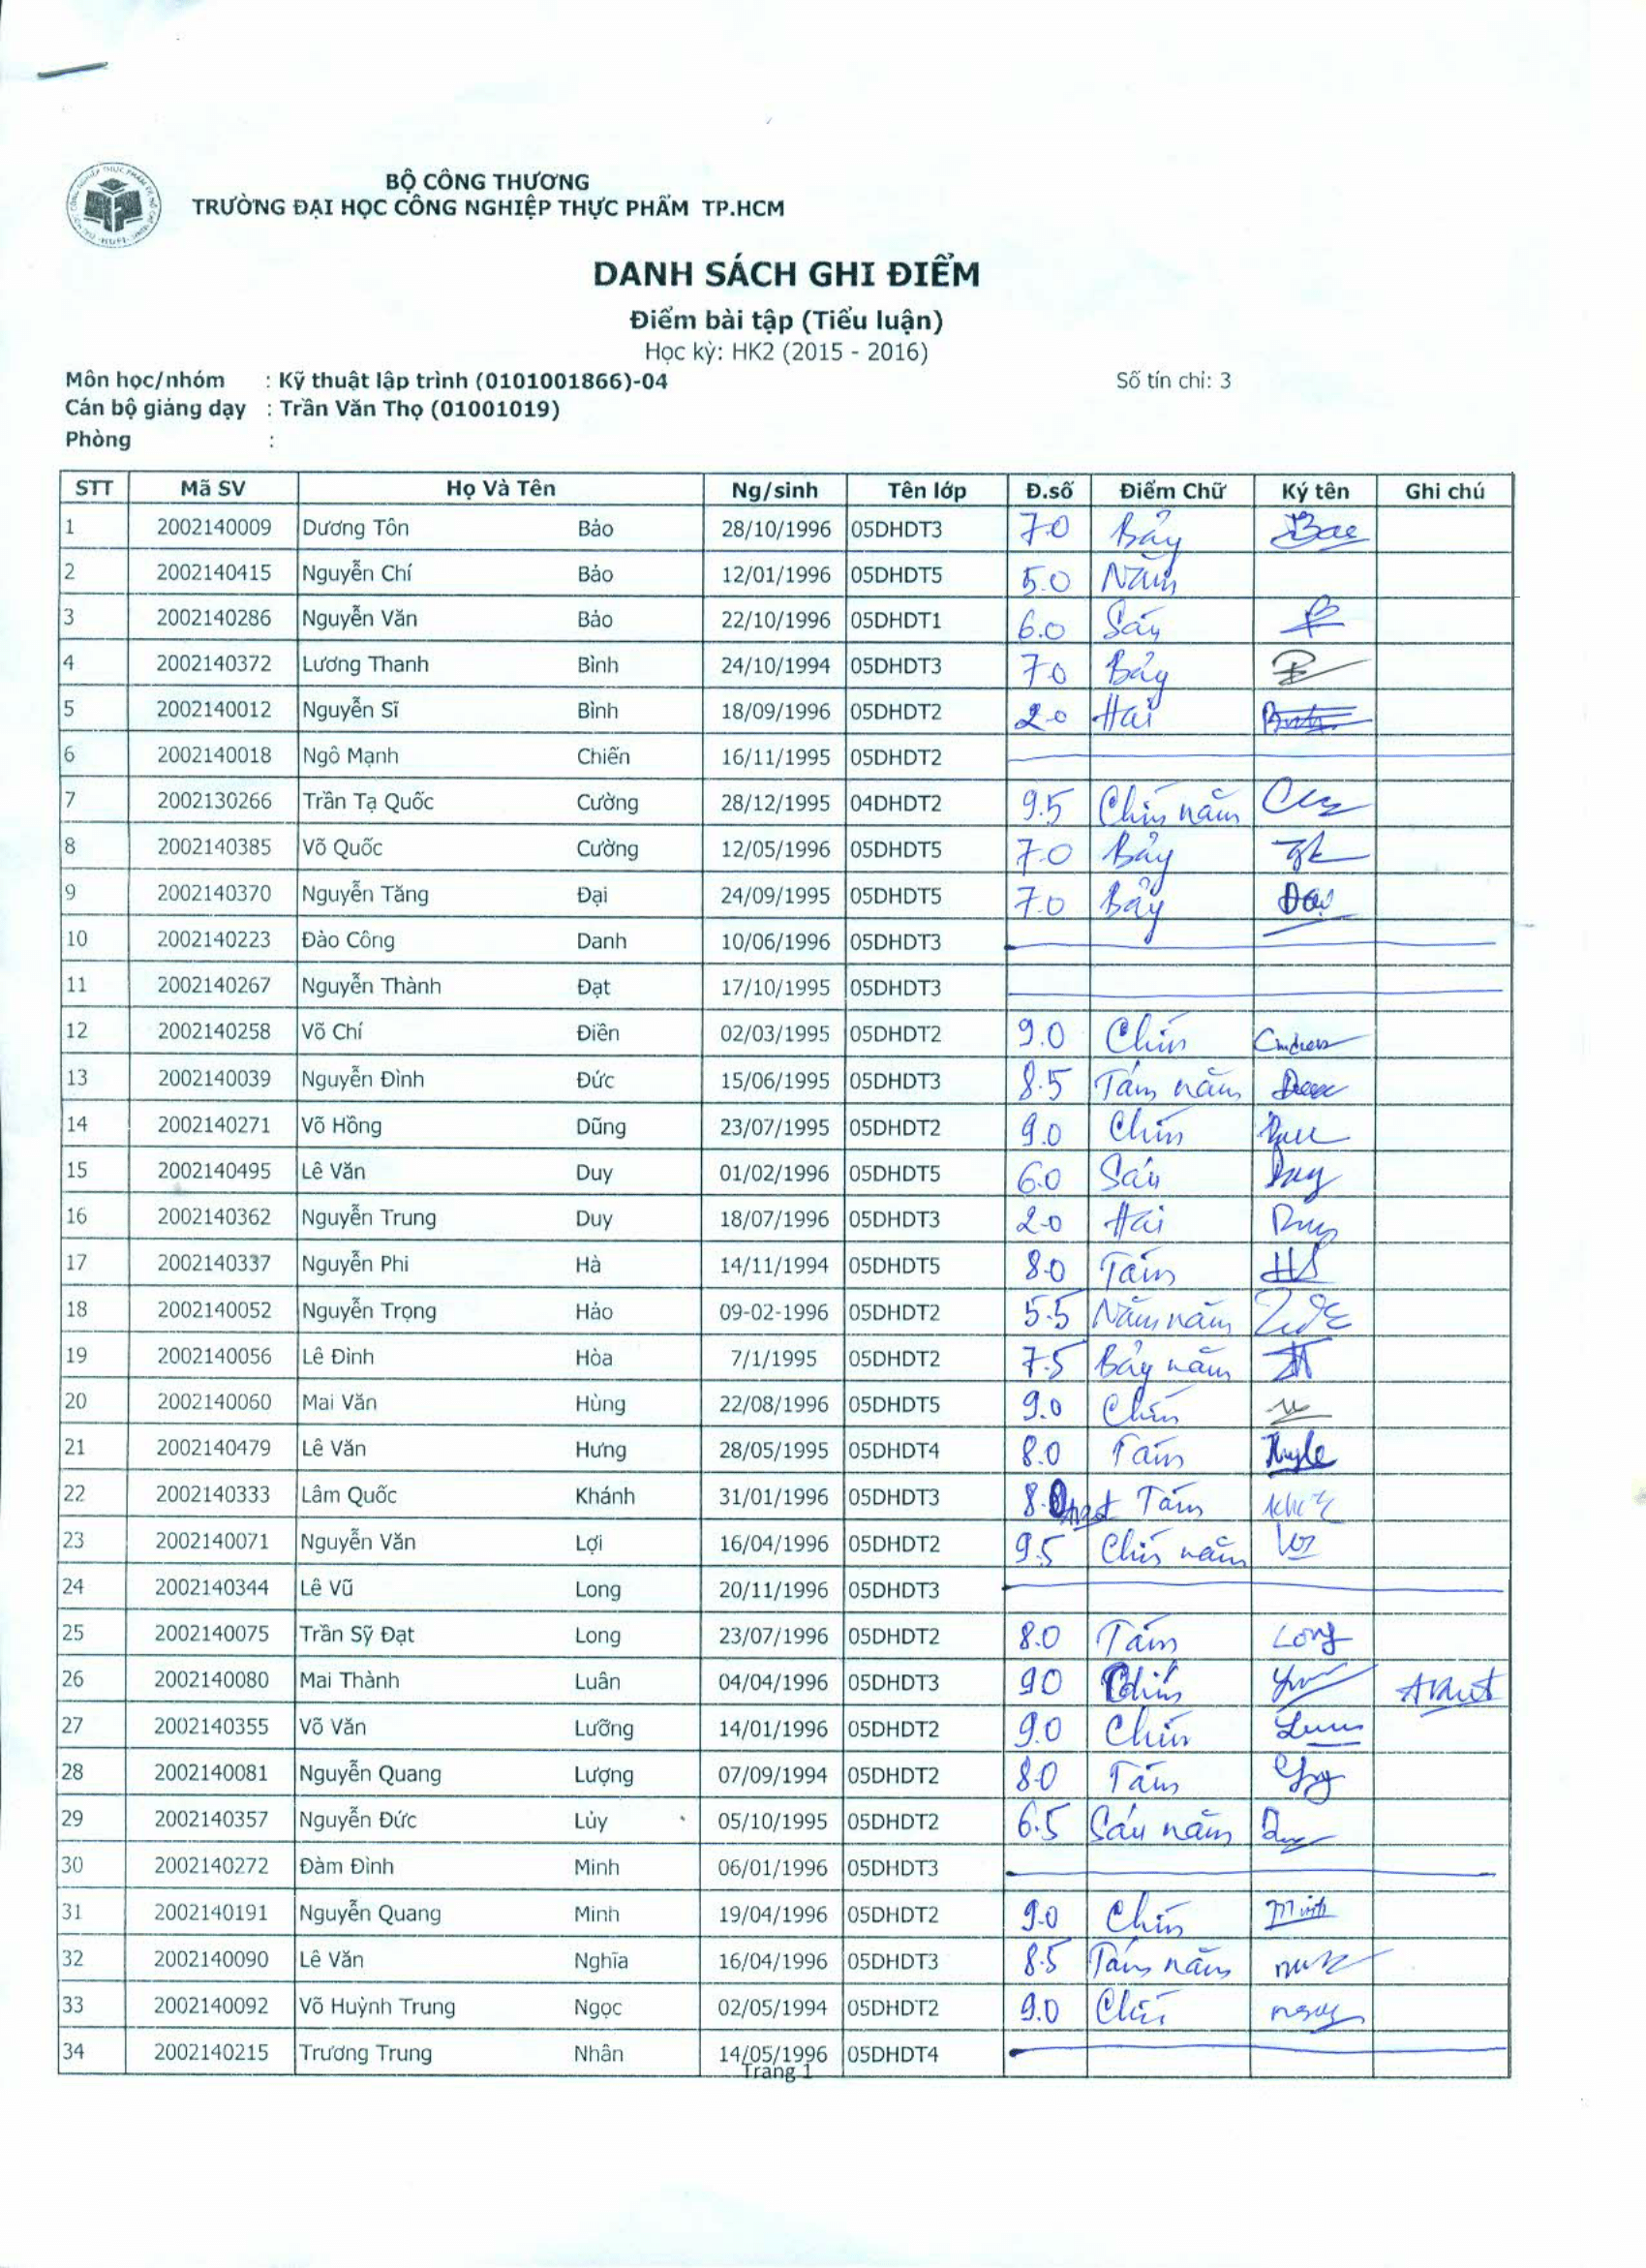 BỘ CÔNG THƯƠNG
TRƯỜNG ĐẠI HỌC CÔNG NGHIỆP THỰC PHẨM TP.HCM
DANH SÁCH GHI ĐIỂM
Điểm bài tập (Tiểu luận)
Học kỳ: HK2 (2015 - 2016)
Môn học/nhóm : Kỹ thuật lập trình (0101001866)-04 Số tín chỉ: 3
Cán bộ giảng dạy : Trần Văn Thọ (01001019)
Phòng :
STT Mã SV Họ Và Tên Ng/sinh Tên lớp Đ.số Điểm Chữ Ký tên Ghi chú
1 2002140009 Dương Tôn Bảo 28/10/1996 05DHDT3 7.0 Bảy
2 2002140415 Nguyễn Chí Bảo 12/01/1996 05DHDT5 5.0 Năm
3 2002140286 Nguyễn Văn Bảo 22/10/1996 05DHDT1 6.0 Sáu
4 2002140372 Lương Thanh Bình 24/10/1994 05DHDT3 7.0 Bảy
5 2002140012 Nguyễn Sĩ Bình 18/09/1996 05DHDT2 2.0 Hai
6 2002140018 Ngô Mạnh Chiến 16/11/1995 05DHDT2
7 2002130266 Trần Tạ Quốc Cường 28/12/1995 04DHDT2 9.5 Chín năm
8 2002140385 Võ Quốc Cường 12/05/1996 05DHDT5 7.0 Bảy
9 2002140370 Nguyễn Tăng Đại 24/09/1995 05DHDT5 7.0 Bảy Đại
10 2002140223 Đào Công Danh 10/06/1996 05DHDT3
11 2002140267 Nguyễn Thành Đạt 17/10/1995 05DHDT3
12 2002140258 Võ Chí Điền 02/03/1995 05DHDT2 9.0 Chín
13 2002140039 Nguyễn Đình Đức 15/06/1995 05DHDT3 8.5 Tám năm
14 2002140271 Võ Hồng Dũng 23/07/1995 05DHDT2 9.0 Chín
15 2002140495 Lê Văn Duy 01/02/1996 05DHDT5 6.0 Sáu Duy
16 2002140362 Nguyễn Trung Duy 18/07/1996 05DHDT3 2.0 Hai Duy
17 2002140337 Nguyễn Phi Hà 14/11/1994 05DHDT5 8.0 Tám
18 2002140052 Nguyễn Trọng Hảo 09-02-1996 05DHDT2 5.5 Năm năm
19 2002140056 Lê Đình Hòa 7/1/1995 05DHDT2 7.5 Bảy năm
20 2002140060 Mai Văn Hùng 22/08/1996 05DHDT5 9.0 Chín
21 2002140479 Lê Văn Hưng 28/05/1995 05DHDT4 8.0 Tám
22 2002140333 Lâm Quốc Khánh 31/01/1996 05DHDT3 8.0 Tám
23 2002140071 Nguyễn Văn Lợi 16/04/1996 05DHDT2 9.5 Chín năm
24 2002140344 Lê Vũ Long 20/11/1996 05DHDT3
25 2002140075 Trần Sỹ Đạt Long 23/07/1996 05DHDT2 8.0 Tám Long
26 2002140080 Mai Thành Luân 04/04/1996 05DHDT3 9.0 Chín
27 2002140355 Võ Văn Lưỡng 14/01/1996 05DHDT2 9.0 Chín
28 2002140081 Nguyễn Quang Lượng 07/09/1994 05DHDT2 8.0 Tám
29 2002140357 Nguyễn Đức Lùy 05/10/1995 05DHDT2 6.5 Sáu năm
30 2002140272 Đàm Đình Minh 06/01/1996 05DHDT3
31 2002140191 Nguyễn Quang Minh 19/04/1996 05DHDT2 9.0 Chín Minh
32 2002140090 Lê Văn Nghĩa 16/04/1996 05DHDT3 8.5 Tám năm
33 2002140092 Võ Huỳnh Trung Ngọc 02/05/1994 05DHDT2 9.0 Chín
34 2002140215 Trương Trung Nhân 14/05/1996 05DHDT4
Trang 1